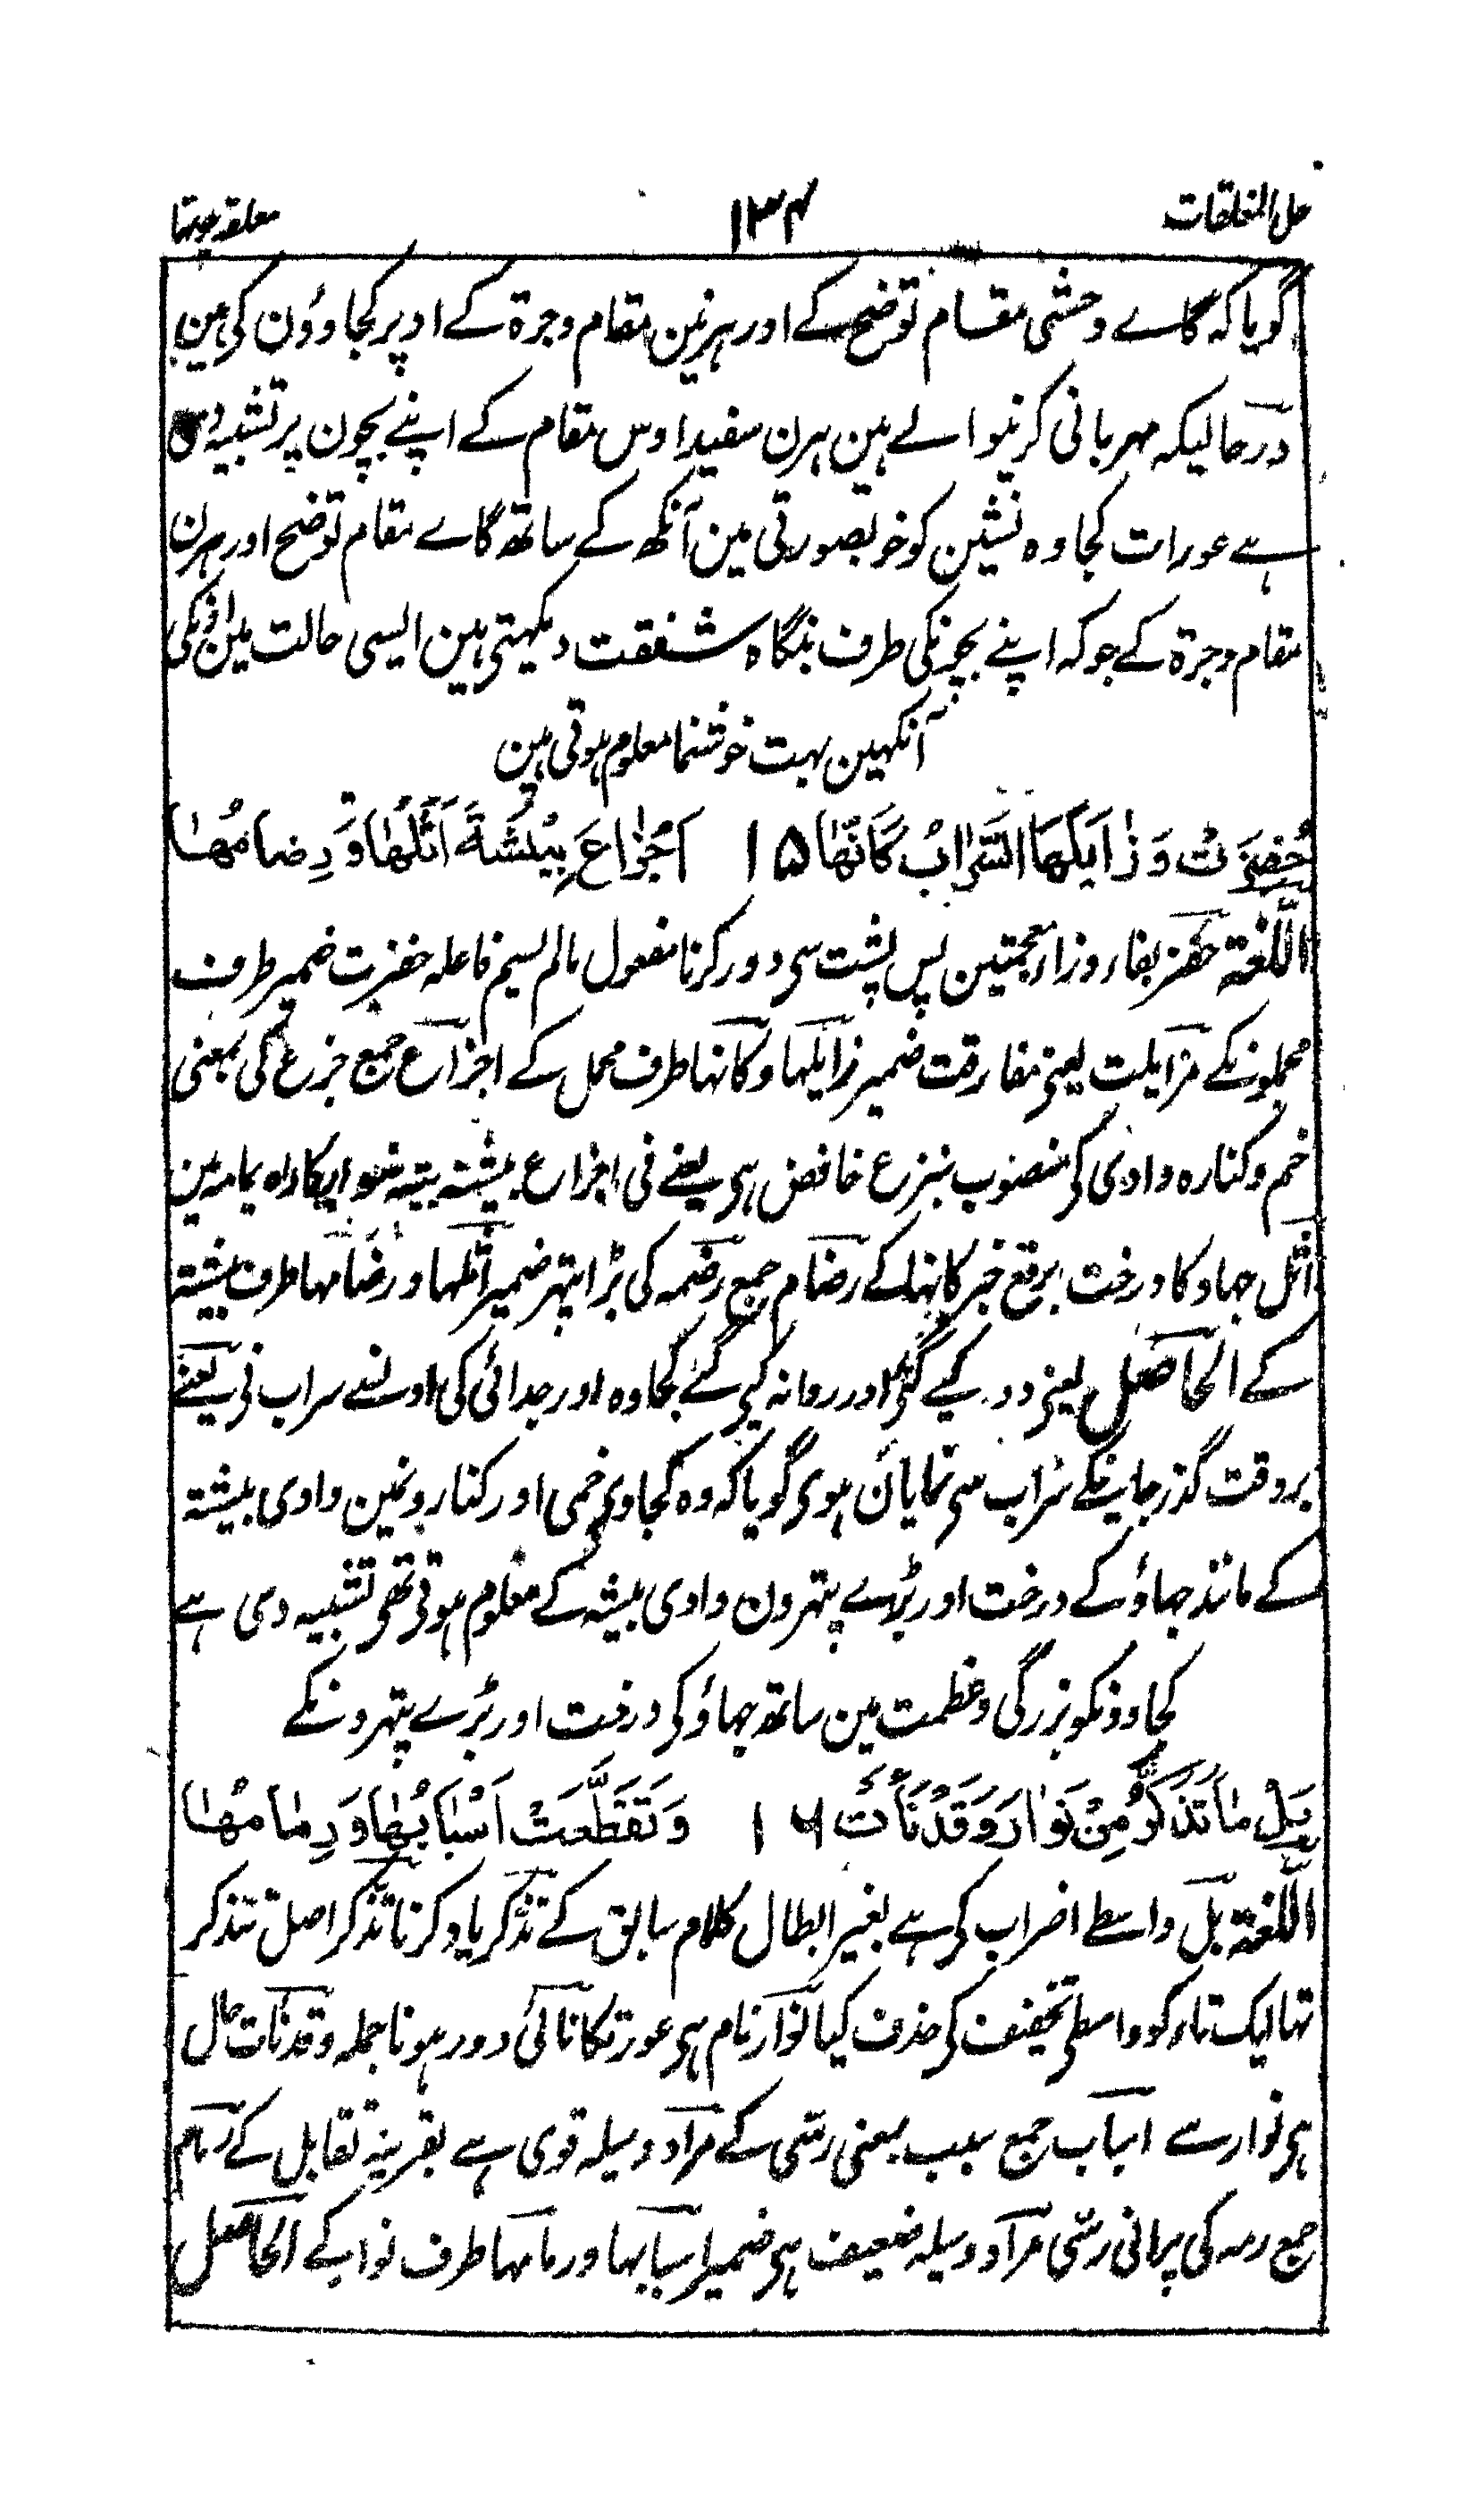 حل المغلقات ۱۳۴ معلقہ چوتھا
گویا کہ گاے وحشی مقام توضح کے اور ہرنین مقام وجرۃ کے اوپر کجاوؤن کی ہین
درحالیکہ مہربانی کرنیوالے ہین ہرن سفید اوس مقام کے اپنے بچون پر تشبیہ دی
ہے عورات کجاوہ نشین کو خوبصورتی مین آنکھ کے ساتھ گاے مقام توضح اور ہرن
مقام وجرۃ کے جو کہ اپنے بچونکی طرف بنگاہ شفقت دیکہتی ہین ایسی حالت مین اونکی
آنکہین بہت خوشنما معلوم ہوتی ہین
حُفِزَتْ وَزَایَلَهَا السَّرَابُ كَاَنَّهَا ۱۵ اَجْزَاعُ بِیْشَةَ اَثْلُهَا وَرِضَامُهَا
اللّغۃ حفز بفاء وزاء معجمتین پس پشت سی دور کرنا مفعول مالم یسم فاعلہ حفزت ضمیر طرف
محملونکے مزایلت یعنی مفارقت ضمیر زایلہا وکانہا طرف محمل کے اجزاع جمع جزع کی بمعنی
خم وکنارہ وادی کی منصوب بنزع خافض ہی یعنے فی اجزاع بیشتہ بیشہ راہ یمامہ مین
اثل جہاو کا درخت برفع خبر کانہا کے رضام جمع رضمہ کی بڑا پتہر ضمیر اثلہا ورضامہا طرف بیشتہ
کے الحاصل یعنی دور کیے گئی اور روانہ کیی گئے کجاوہ اور جدائی کی اونسے سراب نی یعنے
بروقت گذر جانیکے سراب سی نمایان ہوی گویا کہ وہ کجاوی خمی اور کنارونمین وادی بیشتہ
کے مانند جہاؤ کے درخت اور بڑے پتہرون وادی بیشہ کے معلوم ہوتی تھی تشبیہ دی ہے
کجاوونکو بزرگی وعظمت مین ساتھ جہاؤ کی درخت اور بڑے پتہرونکے
بَلْ مَا تَذَكَّرُ مِنْ نَوَارَ وَقَدْ نَاَتْ ۱۶ وَتَقَطَّعَتْ اَسْبَابُهَا وَرِمَامُهَا
اللّغۃ بل واسطے اضراب کی ہے بغیر ابطال کلام سابق کے تذکر یاد کرنا تذکر اصل تتذکر
تہا ایک تاء کو واسطی تخفیف کی حذف کیا نوار نام ہی عورتکا نائی دور ہونا جملہ وقد نات حال
ہی نوار سے اسباب جمع سبب بمعنی رسّی کے مراد وسیلہ قوی ہے بقرینۂ تقابل کے رمام
جمع رمہ کی پرانی رسّی مراد وسیلہ ضعیف ہی ضمیر اسبابہا ورمامہا طرف نوار کے الحاصل